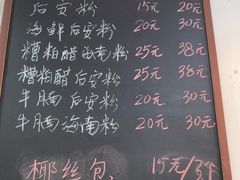 后安粉 15元 20元
海鲜后安粉 20元 30元
糟粕醋海南粉 25元 38元
糟粕醋后安粉 25元 38元
牛腩后安粉 20元 30元
牛腩海南粉 20元 30元
椰丝包 15元/3个